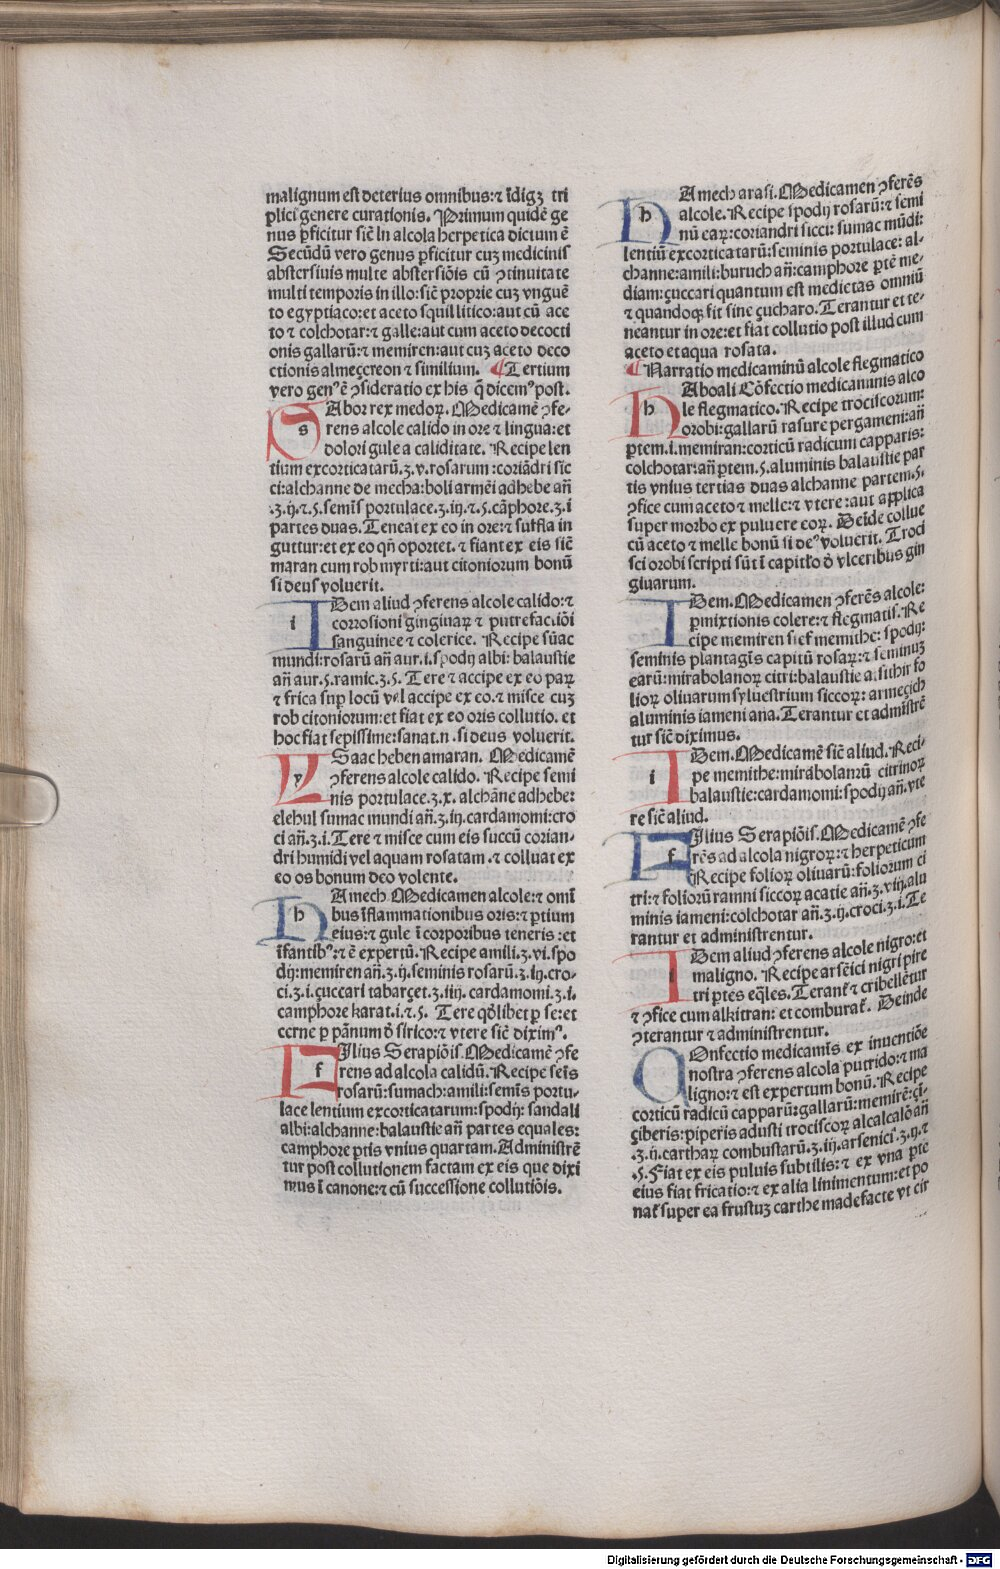 malignum est deterius omnibus:⁊ īdigꝫ tri
plici genere curationis. Primum quidē ge
nus ꝑficitur sic̄ In alcola herpetica dictum ē
Secūdū vero genus ꝑficitur cuꝫ medicinis
abstersiuis multe abstersiōis cū ꝯtinuitate
multi temporis in illo:sic̄ proprie cuꝫ vnguē
to egyptiaco:et aceto squillitico:aut cū ace
to ⁊ colchotar:⁊ galle:aut cum aceto decocti
onis gallarū:⁊ memiren:aut cuꝫ aceto deco
ctionis almeçereon ⁊ similium. ¶Tertium
vero genꝰ ē ꝯsideratio ex his q̄ dicemꝰ post.
s Abor rex medoꝝ. Medicamē ꝯfe-
rens alcole calido in ore ⁊ lingua:et
dolori gule a caliditate. Recipe len
tium excorticatarū.ʒ.v.rosarum:coriādri sic
ci:alchanne de mecha:boli armēi adhebe an̄
.ʒ.ij.⁊.5.semīs portulace.ʒ.iij.⁊.5.cāphore.ʒ.i
partes duas. Teneat ex eo in ore:⁊ suffla in
guttur:et ex eo qn̄ oportet.⁊ fiant ex eis sic̄
maran cum rob myrti:aut citoniorum bonū
si deus voluerit.
i Dem aliud ꝯferens alcole calido:⁊
corrosioni gingiuaꝝ ⁊ putrefactiōi
sanguinee ⁊ colerice. Recipe sūac
mundi:rosarū an̄ aur.i.spodij albi: balaustie
an̄ aur.5.ramic.ʒ.5. Tere ⁊ accipe ex eo paꝝ
⁊ frica suꝑ locū vel accipe ex eo.⁊ misce cuꝫ
rob citoniorum:et fiat ex eo oris collutio. et
hoc fiat sepissime:sanat.n .si deus voluerit.
y Saac heben amaran. Medicamē
ꝯferens alcole calido. Recipe semi
nis portulace.ʒ.x. alchāne adhebe:
elehul sumac mundi an̄.ʒ.iij.cardamomi:cro
ci an̄.ʒ.i. Tere ⁊ misce cum eis succū corian-
dri humidi vel aquam rosatam .⁊ colluat ex
eo os bonum deo volente.
h Amech Medicamen alcole:⁊ omī
bus īflammationibus oris:⁊ ꝑtium
eius:⁊ gule ī corporibus teneris :et
īfantibꝰ:⁊ ē expertū. Recipe amili.ʒ.vi.spo
dij:memiren an̄.ʒ.ij.seminis rosarū.ʒ.iij.cro-
ci.ʒ.i.çuccari tabarçet.ʒ.iiij.cardamomi.ʒ.i.
camphore karat.i.⁊.5. Tere qōlibet ꝑ se:et
cerne ꝑ pānum ō sirico:⁊ vtere sic̄ diximꝰ.
f Ilius Serapiōis. Medicamē ꝯfe
rens ad alcola calidū. Recipe seīs
rosarū:sumach:amili:semīs portu-
lace lentium excorticatarum:spodij: sandali
albi:alchanne:balaustie an̄ partes equales:
camphore ꝑtis vnius quartam. Administrē
tur post collutionem factam ex eis que dixi
mus ī canone:⁊ cū successione collutiōis.
h Amech arasi. Medicamen ꝯferēs
alcole. Recipe spodij rosarū:⁊ semi
nū eaꝝ:coriandri sicci: sumac mūdi:
lentiū excorticatarū:seminis portulace: al-
channe:amili:buruch an̄:camphore ꝑtē me-
diam:çuccari quantum est medietas omniū
⁊ quandoqꝫ fit sine çucharo. Terantur et te-
neantur in ore:et fiat collutio post illud cum
aceto et aqua rosata.
¶Narratio medicaminū alcole flegmatico
h Aboali Cōfectio medicaminis alco
le flegmatico. Recipe trociscorum:
orobi:gallarū rasure pergameni:an̄
ꝑtem.i.memiran:corticū radicum capparis:
colchotar:an̄ ꝑtem.5.aluminis balaustie par
tis vnius tertias duas alchanne partem.5.
ꝯfice cum aceto ⁊ melle:⁊ vtere:aut applica
super morbo ex puluere eoꝝ. Deīde collue
cū aceto ⁊ melle bonū si deꝰ voluerit. Troci
sci orobi scripti sūt ī capitło ō vlceribus gin
giuarum.
Dem. Medicamen ꝯferēs alcole:
ꝑmixtionis colere:⁊ flegmatis. Re
cipe memiren sief memithe: spodij:
seminis plantagīs capitū rosaꝝ:⁊ seminuꝫ
earū:mirabolanoꝝ citri:balaustie assithir fo
lioꝝ oliuarum syluestrium siccoꝝ: armegich
aluminis iameni ana. Terantur et admīstrē
tur sic̄ diximus.
i Dem. Medicamē sic̄ aliud. Reci-
pe memithe:mirabolanrū citrinoꝝ
balaustie:cardamomi:spodij an̄.vte
re sic̄ aliud.
f Ilius Serapiōis. Medicamē ꝯfe
rēs ad alcola nigroꝝ:⁊ herpeticum
Recipe folioꝝ oliuarū:foliorum ci
tri:⁊ foliorū ramni siccoꝝ acatie an̄.ʒ.viij.alu
minis iameni:colchotar an̄.ʒ.ij.croci.ʒ.i. Te
rantur et administrentur.
i Dem aliud ꝯferens alcole nigro:et
maligno. Recipe arsēici nigri pire
tri ꝑtes eq̄les. Terant̄ ⁊ cribellētur
⁊ ꝯfice cum alkitran: et comburat̄. Deinde
ꝯterantur ⁊ administrentur.
Onfectio medicamīs ex inuentiōe
nostra ꝯferens alcola putrido:⁊ ma
ligno:⁊ est expertum bonū. Recipe
corticū radicū capparū:gallarū:memirē:çī-
çiberis:piperis adusti trociscoꝝ alcalcalō an̄
.ʒ.ij.carthaꝝ combustarū.ʒ.iij.arsenici.ʒ.ij.⁊
.5. Fiat ex eis puluis subtilis:⁊ ex vna ꝑte
eius fiat fricatio:⁊ ex alia linimentum:et po
nat̄ super ea frustuꝫ carthe madefacte vt cir
Digitalisierung gefördert durch die Deutsche Forschungsgemeinschaft - DFG